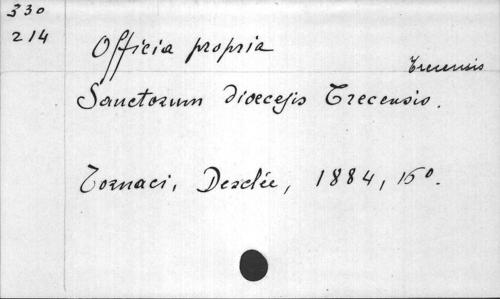 330
214
Officia propria
Trecensis
Sanctorum dioecesis Trecensis.
Tornaci, Desclée, 1884, 16°.